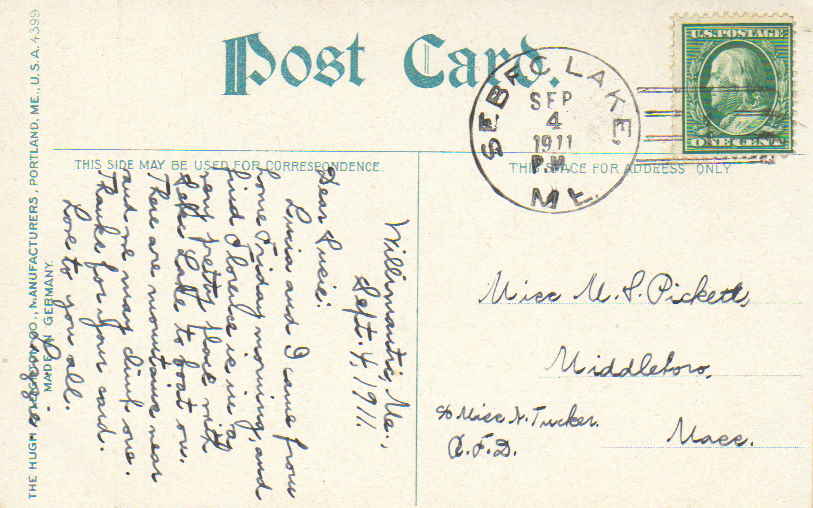 Post Card.
U.S. POSTAGE
ONE CENT
SEBEC LAKE,
SEP
4
1911
P.M.
ME.
THIS SIDE MAY BE USED FOR CORRESPONDENCE
THIS SPACE FOR ADDRESS ONLY
Willimantic, Me.,
Sept. 4, 1911.
Dear Susie:
Lucia and I came from
home Friday morning, and
find Florence is in a
very pretty place with
Sebec Lake to boat on.
There are mountains near
and we may climb one.
Thanks for your card.
Love to you all.
Miss M. S. Pickett,
Middleboro,
Mass.
℅ Miss N. Tucker.
R.F.D.
THE HUGH CO., MANUFACTURERS, PORTLAND, ME., U.S.A. 4399
MADE IN GERMANY.